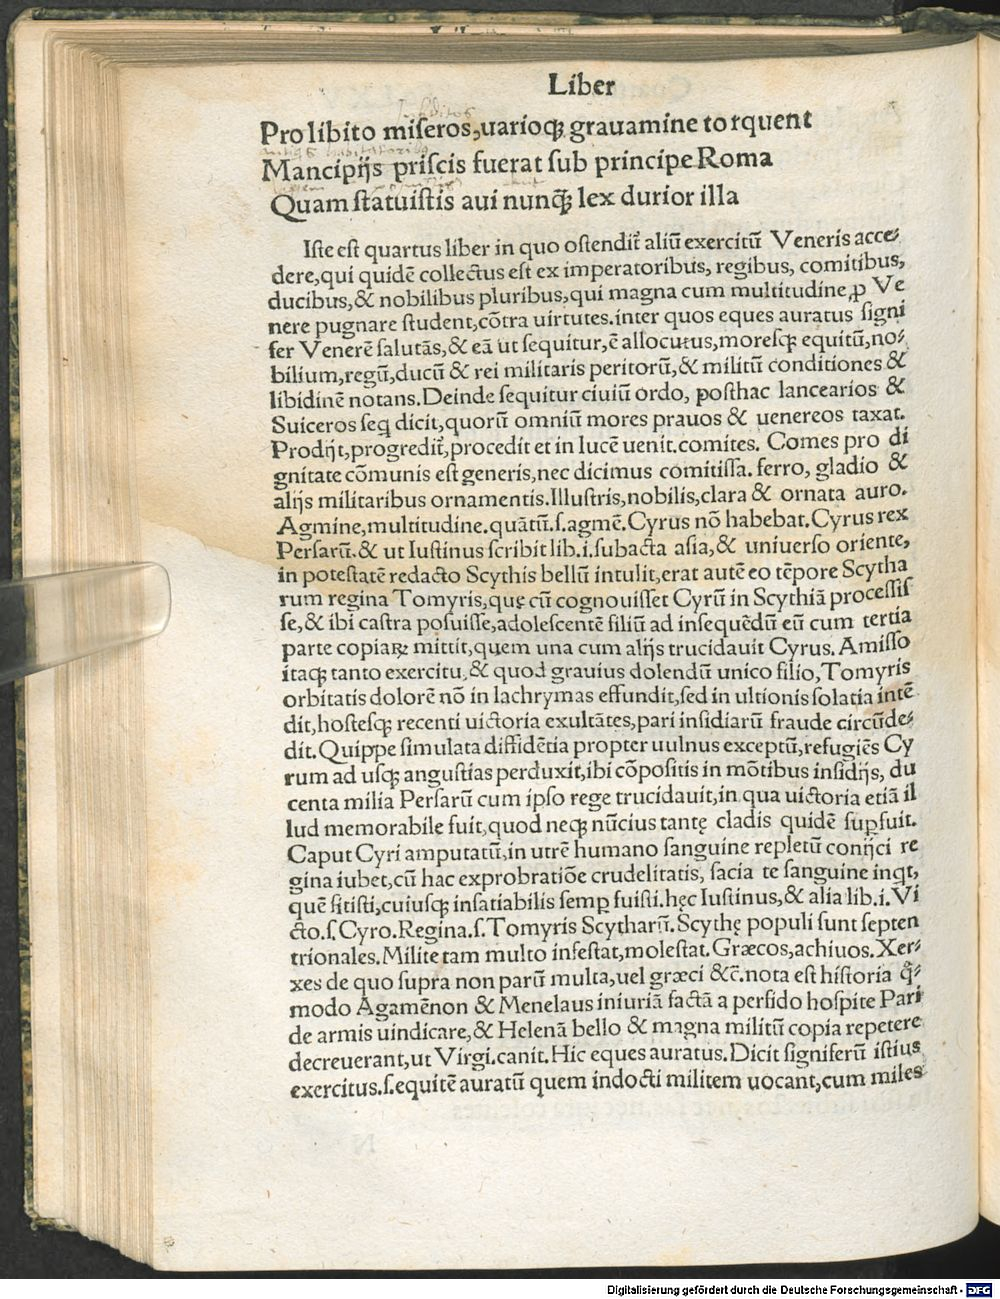 Liber
Pro libito miseros, uarioq̃ grauamine torquent
Mancipijs priscis fuerat sub principe Roma
Quam statuistis aui nunq̃ lex durior illa
Iste est quartus liber in quo ostendit̃ aliũ exercitũ Veneris acce⸗
dere, qui quidẽ collectus est ex imperatoribus, regibus, comitibus,
ducibus, & nobilibus pluribus, qui magna cum multitudine, ꝓ Ve
nere pugnare student, cõtra uirtutes. inter quos eques auratus signi
fer Venerẽ salutãs, & eã ut sequitur, ẽ allocutus, moresq; equitũ, no⸗
bilium, regũ, ducũ & rei militaris peritorũ, & militũ conditiones &
libidinẽ notans. Deinde sequitur ciuiũ ordo, posthac lancearios &
Suiceros seq̃ dicit, quorũ omniũ mores prauos & uenereos taxat.
Prodijt, progredit̃, procedit et in lucẽ uenit. comites. Comes pro di
gnitate cõmunis est generis, nec dicimus comitissa. ferro, gladio &
alijs militaribus ornamentis. Illustris, nobilis, clara & ornata auro.
Agmine, multitudine. quãtũ. s. agmẽ. Cyrus nõ habebat. Cyrus rex
Persarũ. & ut Iustinus scribit lib. i. subacta asia, & uniuerso oriente,
in potestatẽ redacto Scythis bellũ intulit, erat autẽ eo tẽpore Scytha
rum regina Tomyris, quę cũ cognouisset Cyrũ in Scythiã processis
se, & ibi castra posuisse, adolescentẽ filiũ ad insequẽdũ eũ cum tertia
parte copiaꝝ mittit, quem una cum alijs trucidauit Cyrus. Amisso
itaq; tanto exercitu, & quod grauius dolendũ unico filio, Tomyris
orbitatis dolorẽ nõ in lachrymas effundit, sed in ultionis solatia intẽ
dit, hostesq; recenti uictoria exultãtes, pari insidiarũ fraude circũde⸗
dit. Quippe simulata diffidẽtia propter uulnus exceptũ, refugiẽs Cy
rum ad usq; angustias perduxit, ibi cõpositis in mõtibus insidijs, du
centa milia Persarũ cum ipso rege trucidauit, in qua uictoria etiã il
lud memorabile fuit, quod neq; nũcius tantę cladis quidẽ suꝑfuit.
Caput Cyri amputatũ, in utrẽ humano sanguine repletũ conijci re
gina iubet, cũ hac exprobratiõe crudelitatis, sacia te sanguine inqt,
quẽ sitisti, cuiusq; insatiabilis semꝑ fuisti. hęc Iustinus, & alia lib. i. Vi
cto. s. Cyro. Regina. s. Tomyris Scytharũ. Scythę populi sunt septen
trionales. Milite tam multo infestat, molestat. Græcos, achiuos. Xer⸗
xes de quo supra non parũ multa, uel græci &c̃. nota est historia q̃⸗
modo Agamẽnon & Menelaus iniuriã factã a perfido hospite Pari
de armis uindicare, & Helenã bello & magna militũ copia repetere
decreuerant, ut Virgi. canit. Hic eques auratus. Dicit signiferũ istius
exercitus. s. equitẽ auratũ quem indocti militem uocant, cum miles
Digitalisierung gefördert durch die Deutsche Forschungsgemeinschaft - DFG